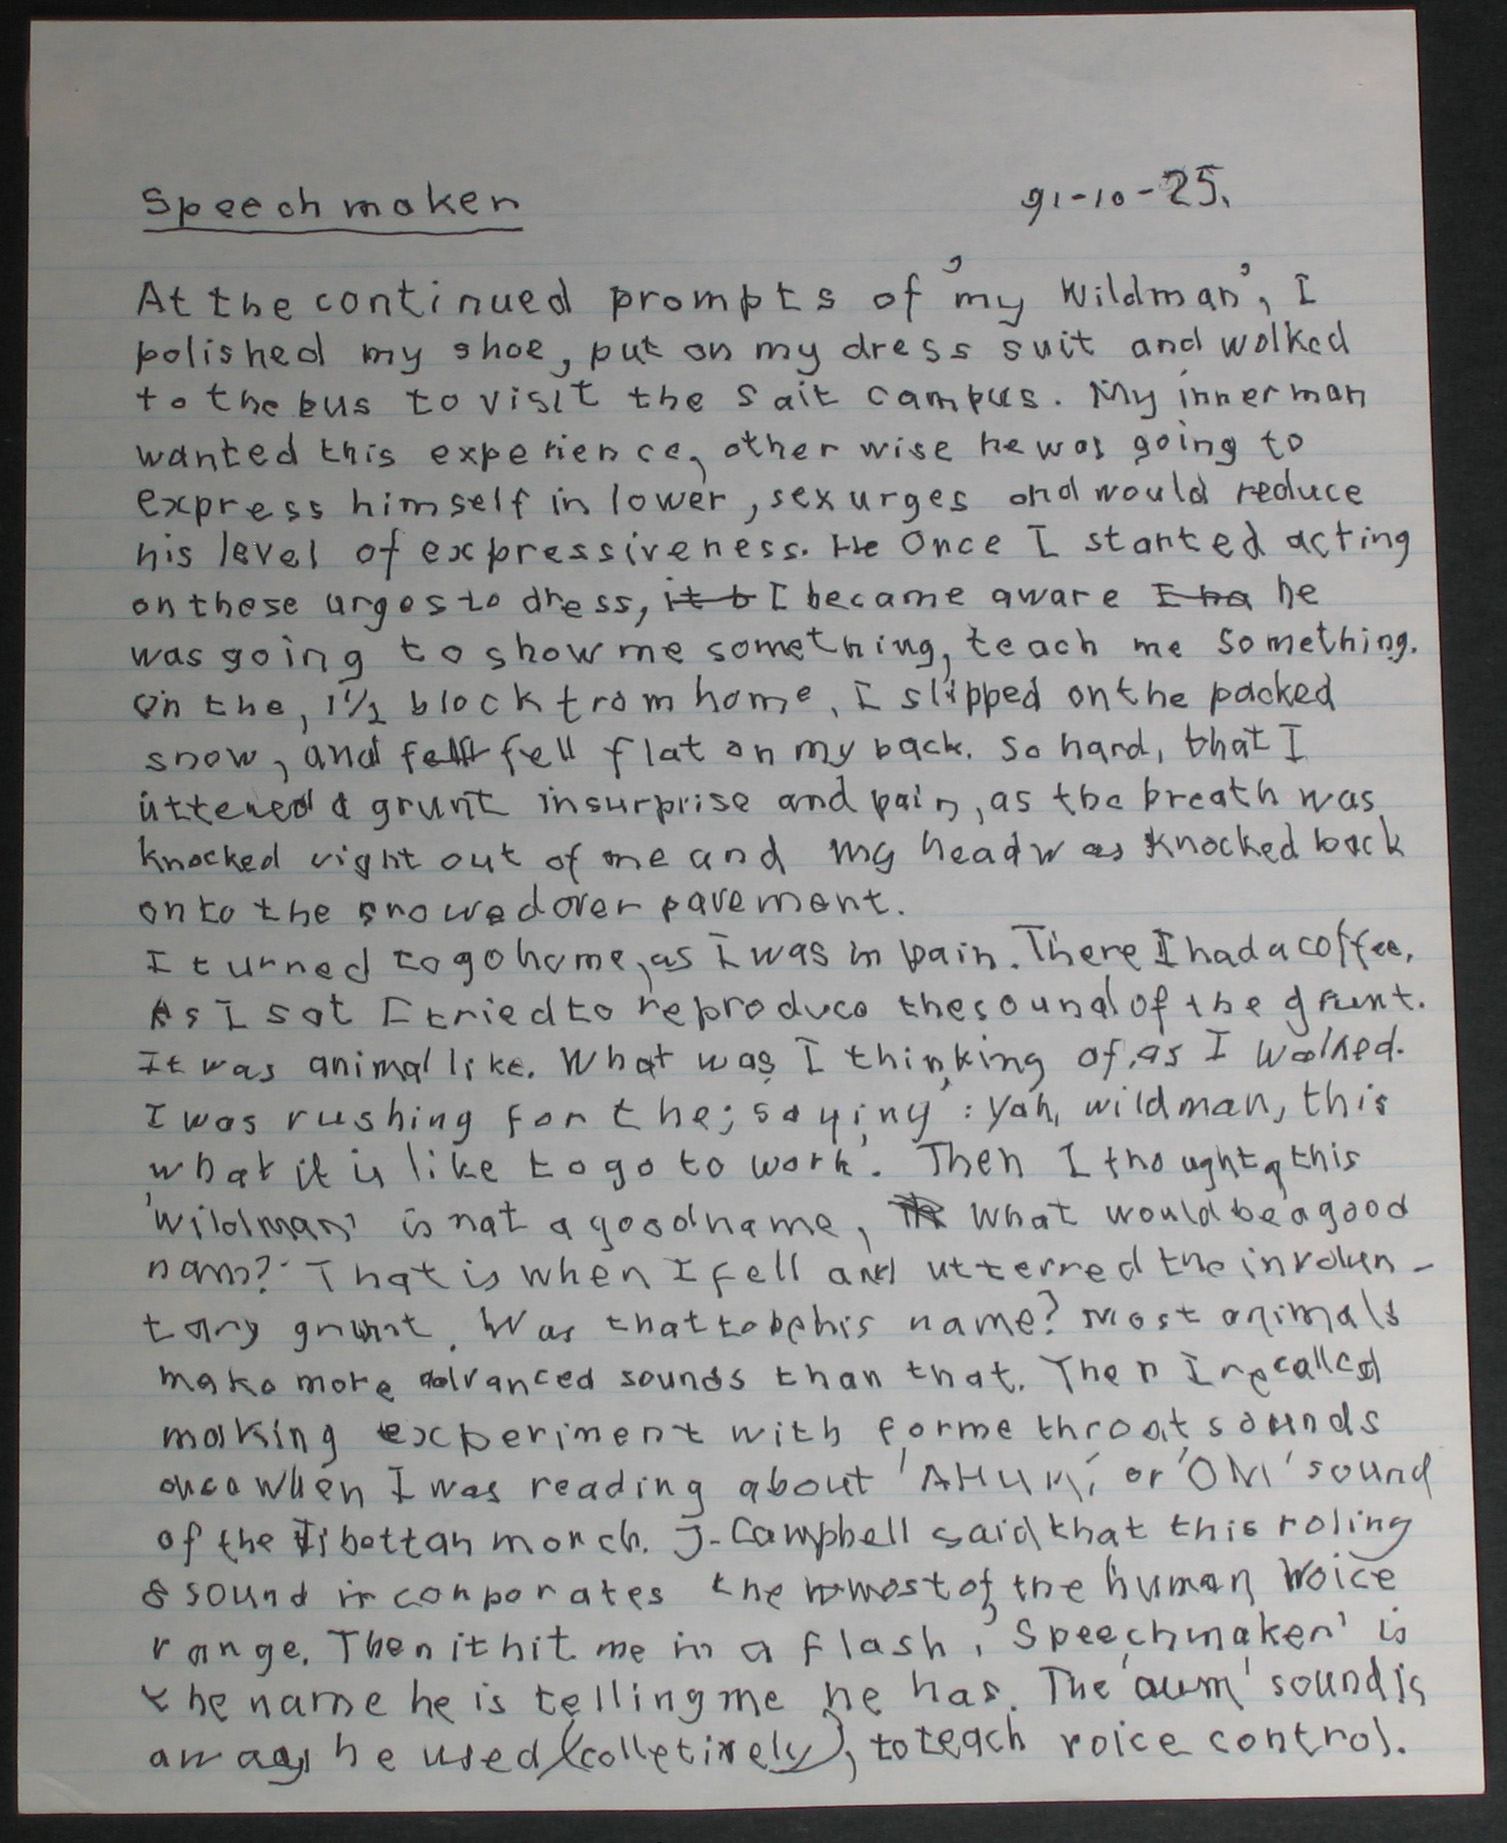 Speechmaker 91-10-25.
At the continued prompts of 'my Wildman', I
polished my shoe, put on my dress suit and walked
to the bus to visit the Sait campus. My inner man
wanted this experience, other wise he was going to
express himself in lower, sex urges and would reduce
his level of expressiveness. He Once I started acting
on these urges to dress, it b I became aware I ha he
was going to show me something, teach me something.
On the, 1½ block from home, I slipped on the packed
snow, and fell flat on my back. So hard, that I
uttered a grunt in surprise and pain, as the breath was
knocked right out of me and my head was knocked back
onto the snowed over pavement.
I turned to go home, as I was in pain. There I had a coffee.
As I sat I tried to reproduce the sound of the grunt.
It was animal like. What was I thinking of, as I walked.
I was rushing for the; saying : 'Yah, wildman, this
what it is like to go to work'. Then I thought, this
'wildman' is not a good name, what would be a good
nam? That is when I fell and utterred the involun-
tary grunt. Was that to be his name? Most animals
make more advanced sounds than that. Then I recalled
making experiment with forme throat sounds
once when I was reading about 'AHUM,' or 'OM' sound
of the Tibettan monch. J. Campbell said that this roling
sound incorporates the most of the human voice
range. Then it hit me in a flash, 'Speechmaker' is
the name he is telling me he has. The 'aum' sound is
a way he used (colletively), to teach voice control.